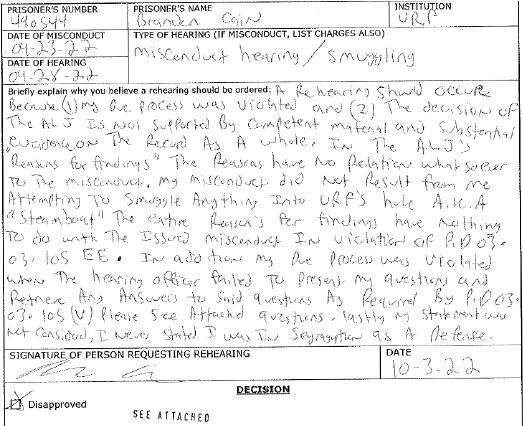 PRISONER'S NUMBER PRISONER'S NAME INSTITUTION
490544 Branden Cain URF
DATE OF MISCONDUCT TYPE OF HEARING (IF MISCONDUCT, LIST CHARGES ALSO)
09-23-22 misconduct hearing / smuggling
DATE OF HEARING
09-28-22
Briefly explain why you believe a rehearing should be ordered: A Rehearing Should occure
Because (1) my Due process was violated and (2) The decision of
The ALJ Is Not supported By Competent material and Substantial
evidence on The Record As A whole. In The ALJ's
"Reasons for findings" The Reasons have No Relation what so ever
To The misconduct. my misconduct did Not Result from me
Attempting To Smuggle Anything Into URF's hole A.K.A
"Steamboat" The entire Reason's for findings have Nothing
To do with The Issued misconduct In violation of P.D 03.
03.105 EE. In addition my Due Process was violated
when The hearing officer failed To Present my questions and
Retrieve Any Answers to Said questions As Required By P.D 03.
03.105 (V) Please See Attached questions. lastly my Statement was
Not Considerd, I Never Stated I was In Segregation as A Defense.
SIGNATURE OF PERSON REQUESTING REHEARING DATE
10-3-22
DECISION
Disapproved
SEE ATTACHED